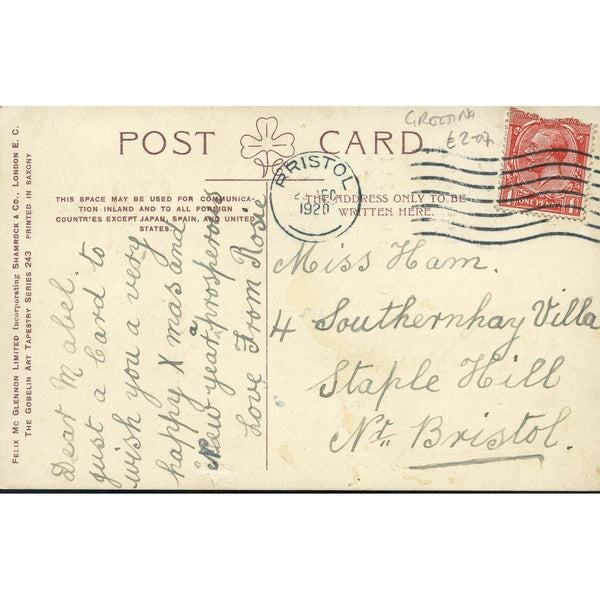 FELIX MC GLENNON LIMITED Incorporating SHAMROCK & CO., LONDON E. C.
THE GOBELIN ART TAPESTRY SERIES 243 PRINTED IN SAXONY
POST CARD.
GREETING
£2-00
THIS SPACE MAY BE USED FOR COMMUNICA-
TION INLAND AND TO ALL FOREIGN
COUNTRIES EXCEPT JAPAN, SPAIN, AND UNITED
STATES.
THE ADDRESS ONLY TO BE
WRITTEN HERE.
BRISTOL
DEC
1920
ONE PENNY
Dear Mabel.
just a Card to
wish you a very
happy Xmas and
a prosperous
New year
Love From Rosie
Miss Ham.
4 Southernhay Villa
Staple Hill
Nr. Bristol.